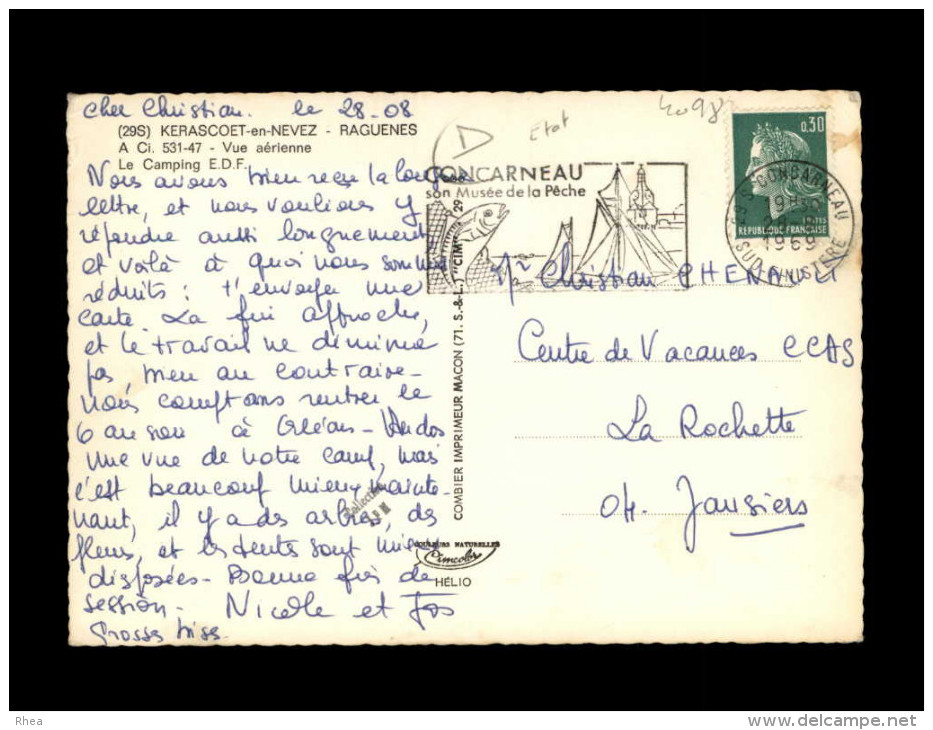 cher Christian. le 28-08
(29S) KERASCOET-en-NEVEZ - RAGUENES
A Ci. 531-47 - Vue aérienne
Le Camping E.D.F.
Nous avons bien reçu ta longue
lettre, et nous voulions y
répondre aussi longuement
et voilà à quoi nous sommes
réduits : t'envoyer une
carte. La fin approche,
et le travail ne diminue
pas, bien au contraire -
nous comptons rentrer le
6 au soir à Orléans - Au dos
une vue de notre camp, mais
c'est beaucoup mieux mainte-
nant, il y a des arbres, des
fleurs, et les tentes sont mieux
disposées - Bonne fin de
session. Nicole et Jos
Grosses bises.
D
Etat
4098
CONCARNEAU
son Musée de la Pêche
0,30
POSTES
REPUBLIQUE FRANÇAISE
29 S CONCARNEAU
1969
SUD FINISTERE
Mr Christian CHENAULT
Centre de Vacances CCAS
La Rochette
04. Jausiers
COMBIER IMPRIMEUR MACON (71. S.-&-L.) "CIM"
Collection
COULEURS NATURELLES
Cimcolor
HÉLIO
Rhea
www.delcampe.net